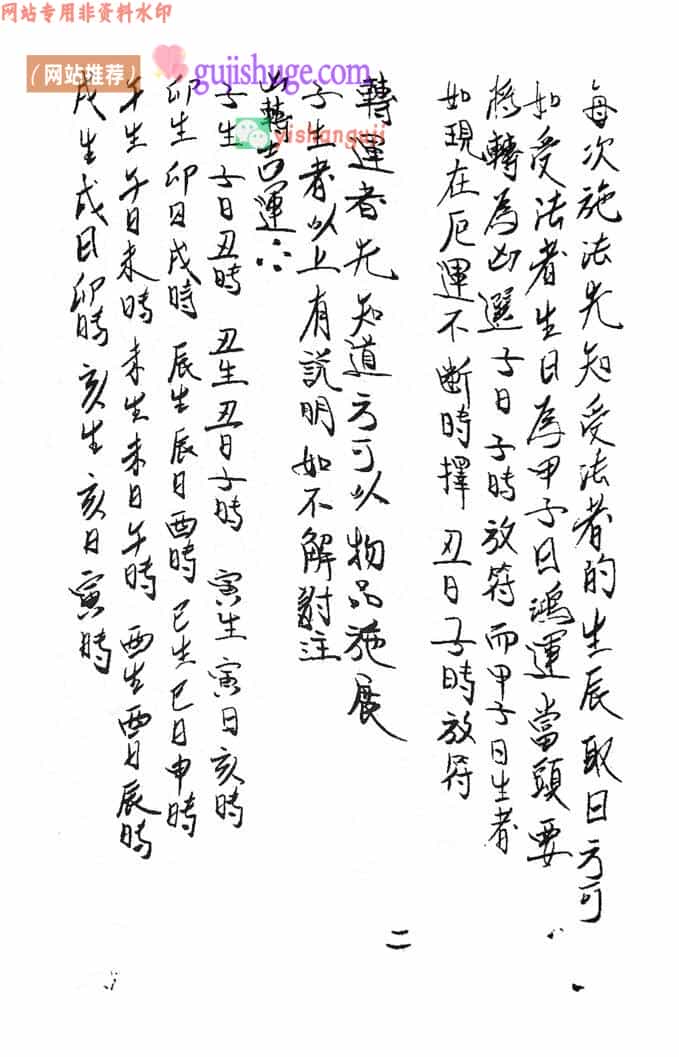 网站专用非资料水印
（网站推荐）
gujishuge.com
yishanguji
每次施法先知受法者的生辰取日方可
如受法者生日為甲子日鴻運當頭要
將轉為凶選子日子時放符而甲子日生者
如現在厄運不斷時擇丑日子時放符
轉運者先知道方可以物品施展
子生者以上有説明如不解對注
凶轉吉運
子生子日丑時 丑生丑日子時 寅生寅日亥時
卯生卯日戌時 辰生辰日酉時 巳生巳日申時
午生午日未時 未生未日午時 酉生酉日辰時
戌生戌日卯時 亥生亥日寅時
二